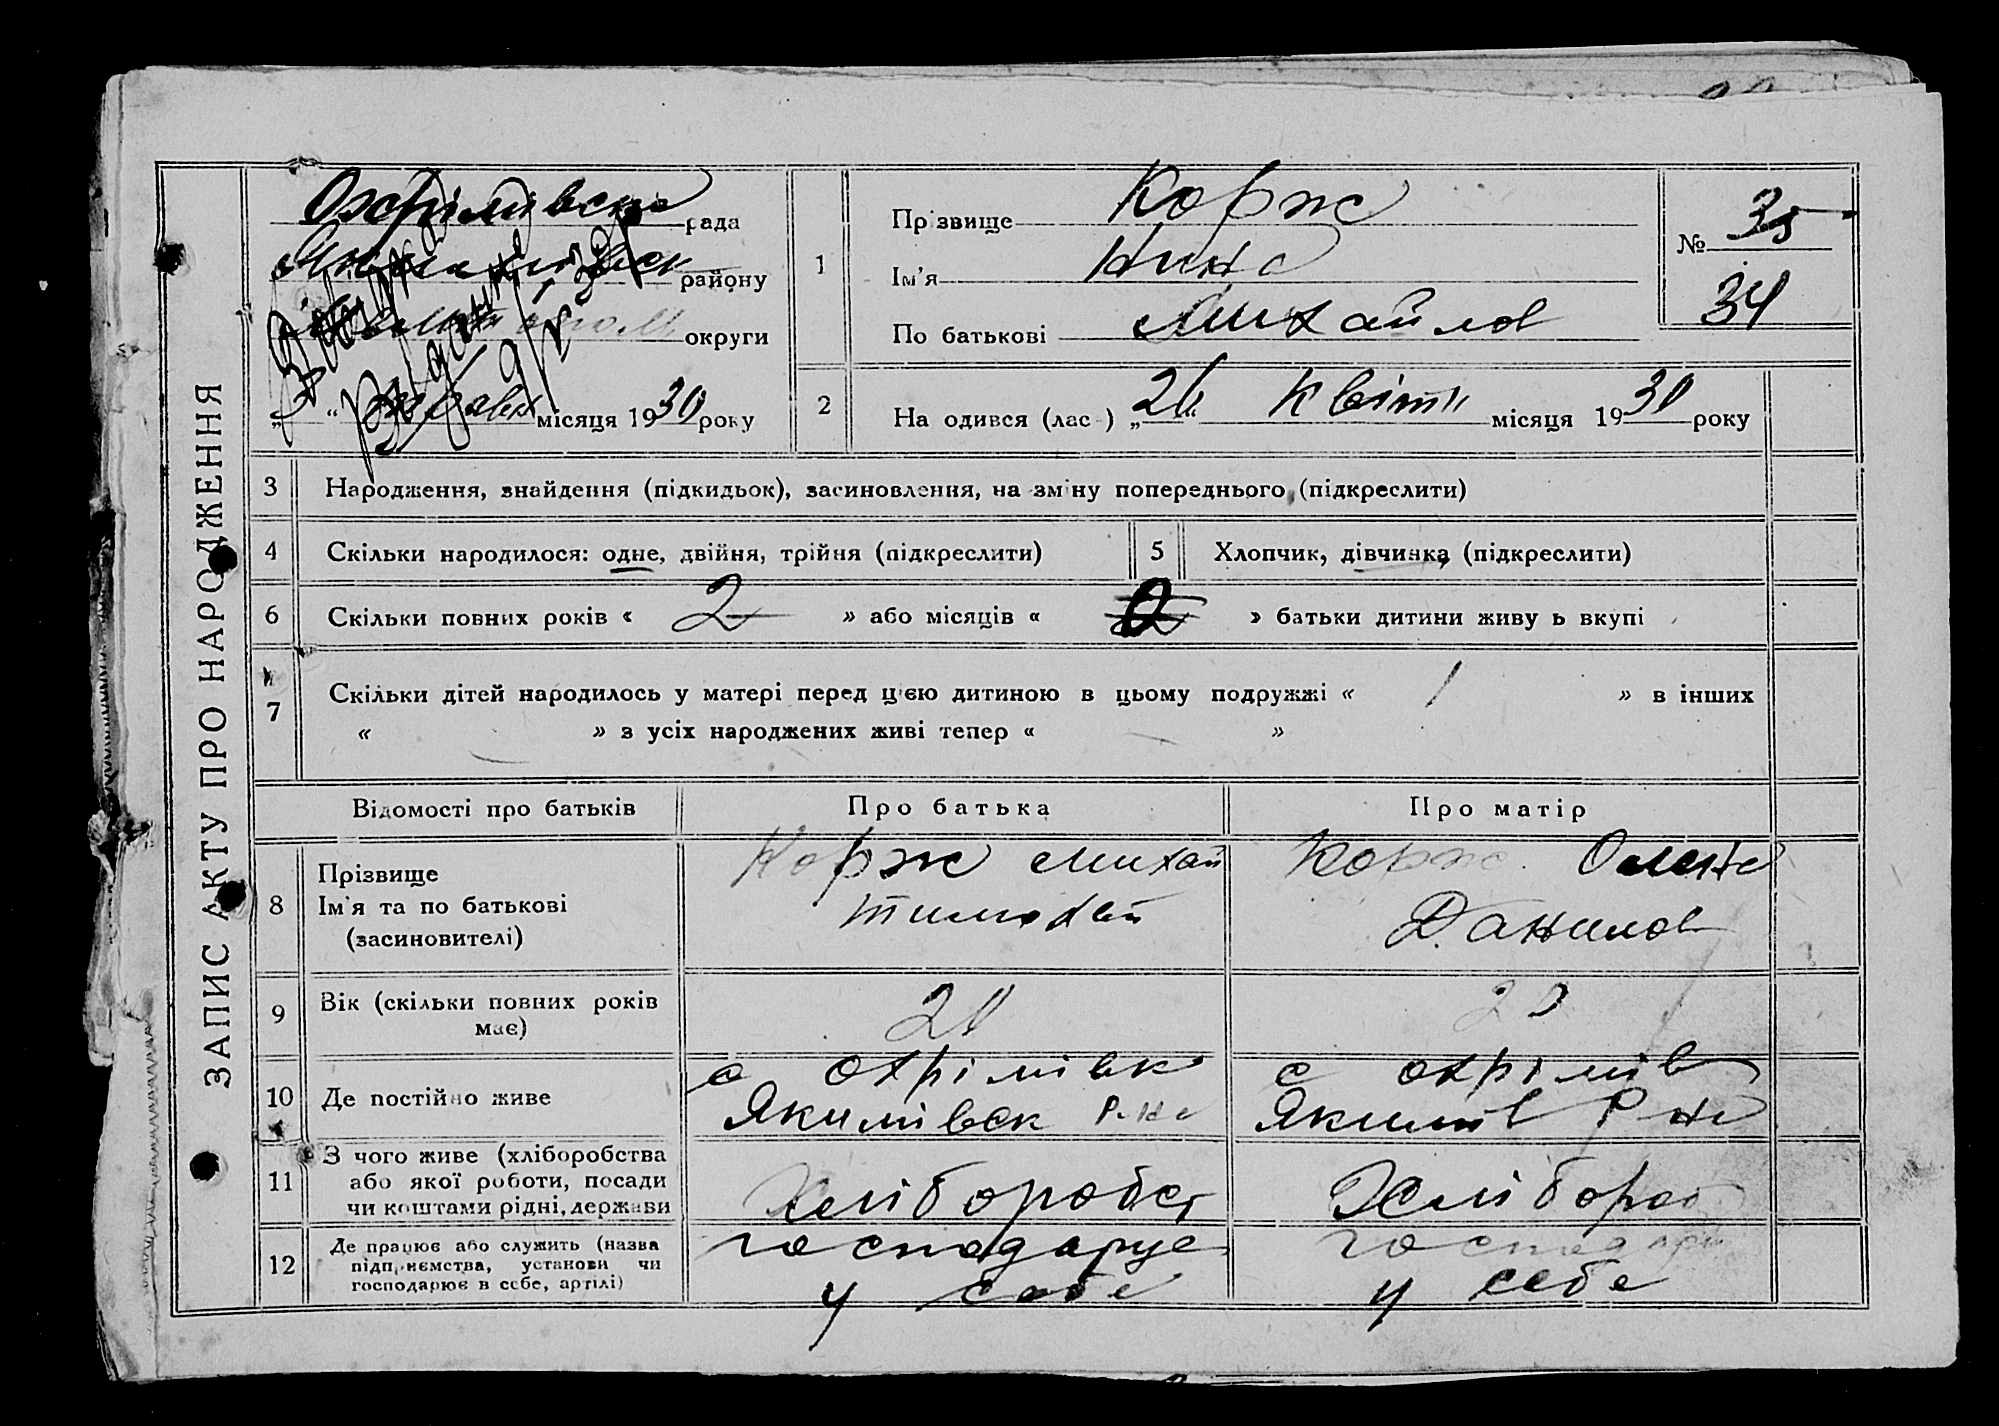 ЗАПИС АКТУ ПРО НАРОДЖЕННЯ
Охрімівська рада
району
округи
" місяця 1930 року
1
Прізвище Корж
Ім'я Нина
По батькові Михайлов
№ 35
34
2
На одився (лас-) „26" Квітн місяця 1930 року
3 Народження, знайдення (підкидьок), засиновлення, на зміну попереднього (підкреслити)
4 Скільки народилося: одне, двійня, трійня (підкреслити)
5 Хлопчик, дівчинка (підкреслити)
6 Скільки повних років « 2 » або місяців « » батьки дитини живу ь вкупі
7 Скільки дітей народилось у матері перед цією дитиною в цьому подружжі « 1 » в інших
« » з усіх народжених живі тепер « »
Відомості про батьків Про батька Про матір
8 Прізвище
Ім'я та по батькові
(засиновителі)
Корж Михай
Тимохей
Корж Олена
Данилов
9 Вік (скільки повних років
має)
20
20
10 Де постійно живе
с Охрімівк
Якимівск Р-на
с Охрімів
Якимів Р на
11 З чого живе (хліборобства
або якої роботи, посади
чи коштами рідні, держави
Хліборобст
Хлібороб
12 Де працює або служить (назва
підприємства, установи чи
господарює в себе, артілі)
господарує
у себе
господарю
у себе